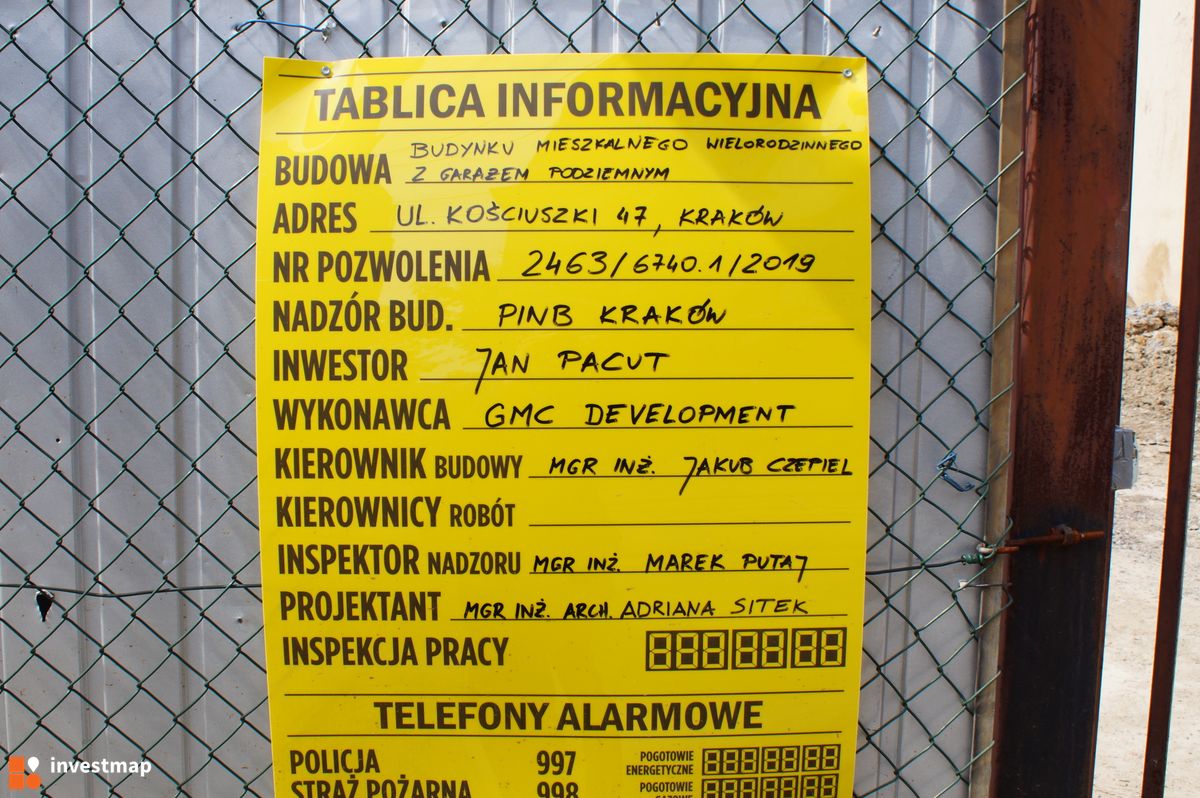 TABLICA INFORMACYJNA
BUDOWA BUDYNKU MIESZKALNEGO WIELORODZINNEGO
Z GARAŻEM PODZIEMNYM
ADRES UL. KOŚCIUSZKI 47, KRAKÓW
NR POZWOLENIA 2463/6740.1/2019
NADZÓR BUD. PINB KRAKÓW
INWESTOR JAN PACUT
WYKONAWCA GMC DEVELOPMENT
KIEROWNIK BUDOWY MGR INŻ. JAKUB CZEPIEL
KIEROWNICY ROBÓT
INSPEKTOR NADZORU MGR INŻ. MAREK PUTAJ
PROJEKTANT MGR INŻ. ARCH. ADRIANA SITEK
INSPEKCJA PRACY
TELEFONY ALARMOWE
POLICJA 997 POGOTOWIE ENERGETYCZNE
STRAŻ POŻARNA 998 POGOTOWIE
investmap